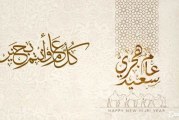 كل عام وأنتم بخير
عام هجري سعيد
HAPPY NEW HIJRI YEAR